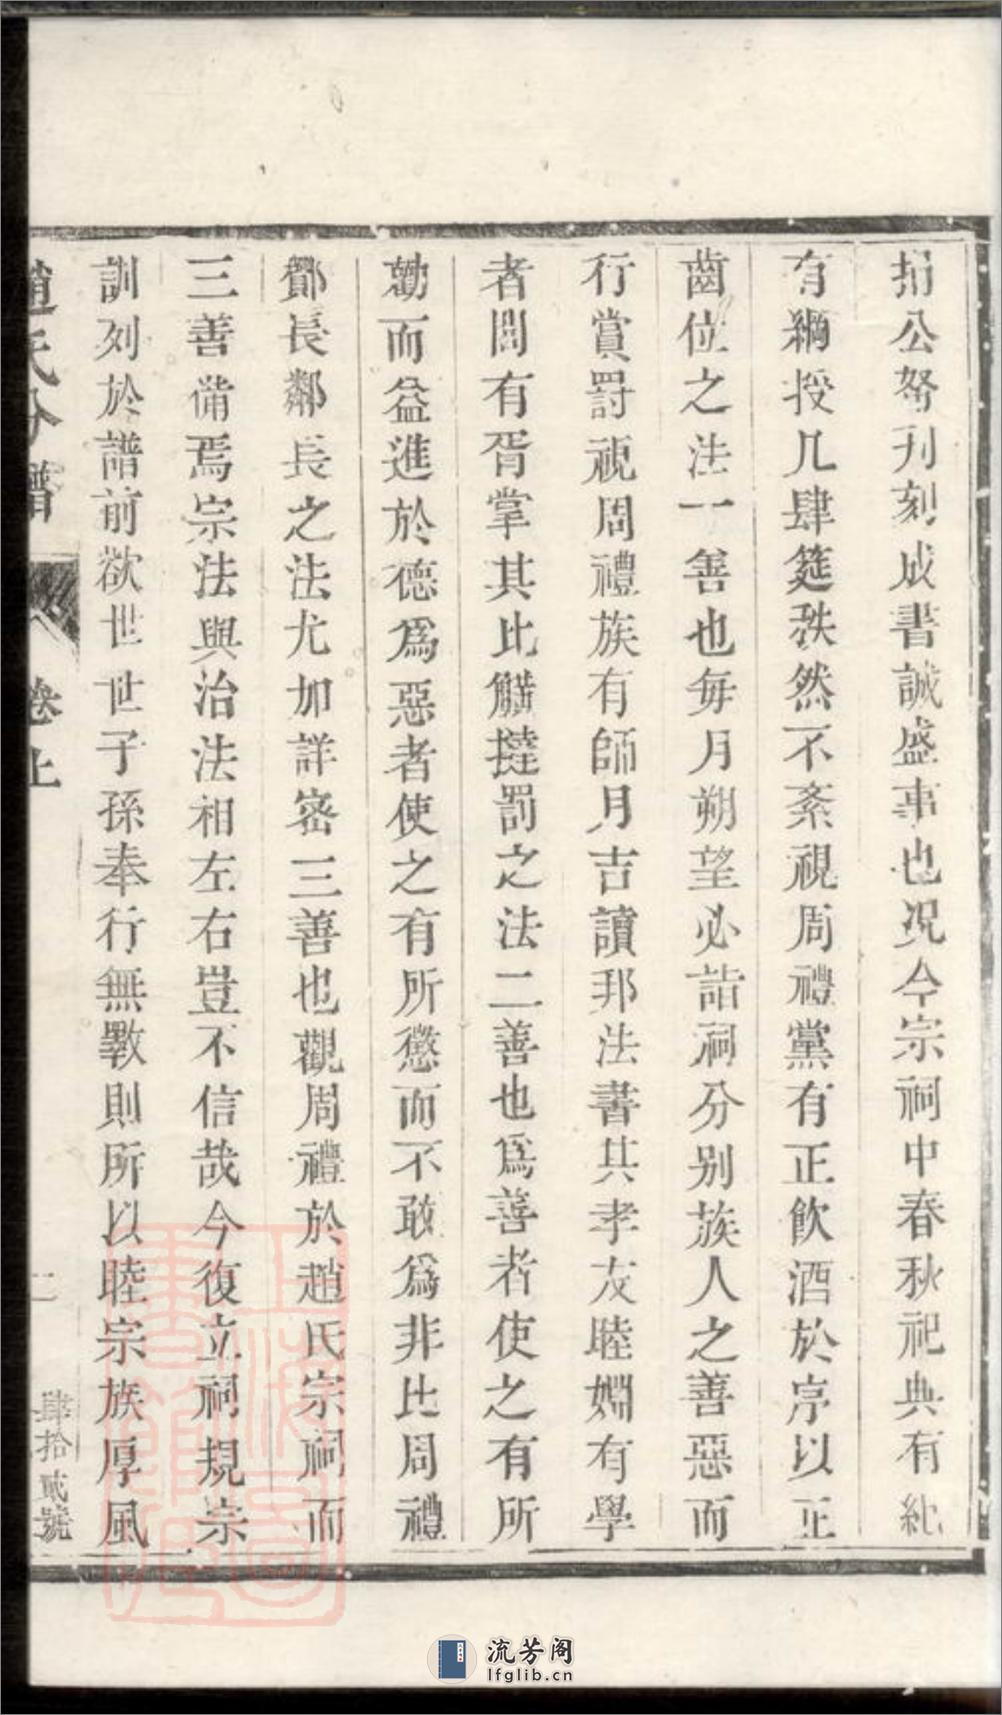 捐公帑刋刻成書誠盛事也况今宗祠中春秋祀典有紀
有綱授几肆筵秩然不紊視周禮黨有正飲酒於序以正
齒位之法一善也每月朔望必詣祠分别族人之善惡而
行賞罸視周禮族有師月吉讀邦法書其孝友睦婣有學
者閭有胥掌其比觵撻罰之法二善也爲善者使之有所
勸而益進於德爲惡者使之有所懲而不敢爲非比周禮
酇長鄰長之法尤加詳密三善也觀周禮於趙氏宗祠而
三善備焉宗法與治法相左右豈不信哉今復立祠規宗
訓列於譜前欲世世子孫奉行無斁則所以睦宗族厚風
趙氏分譜 卷上 二 肆拾貳號
上海圖書館藏
流芳阁
lfglib.cn